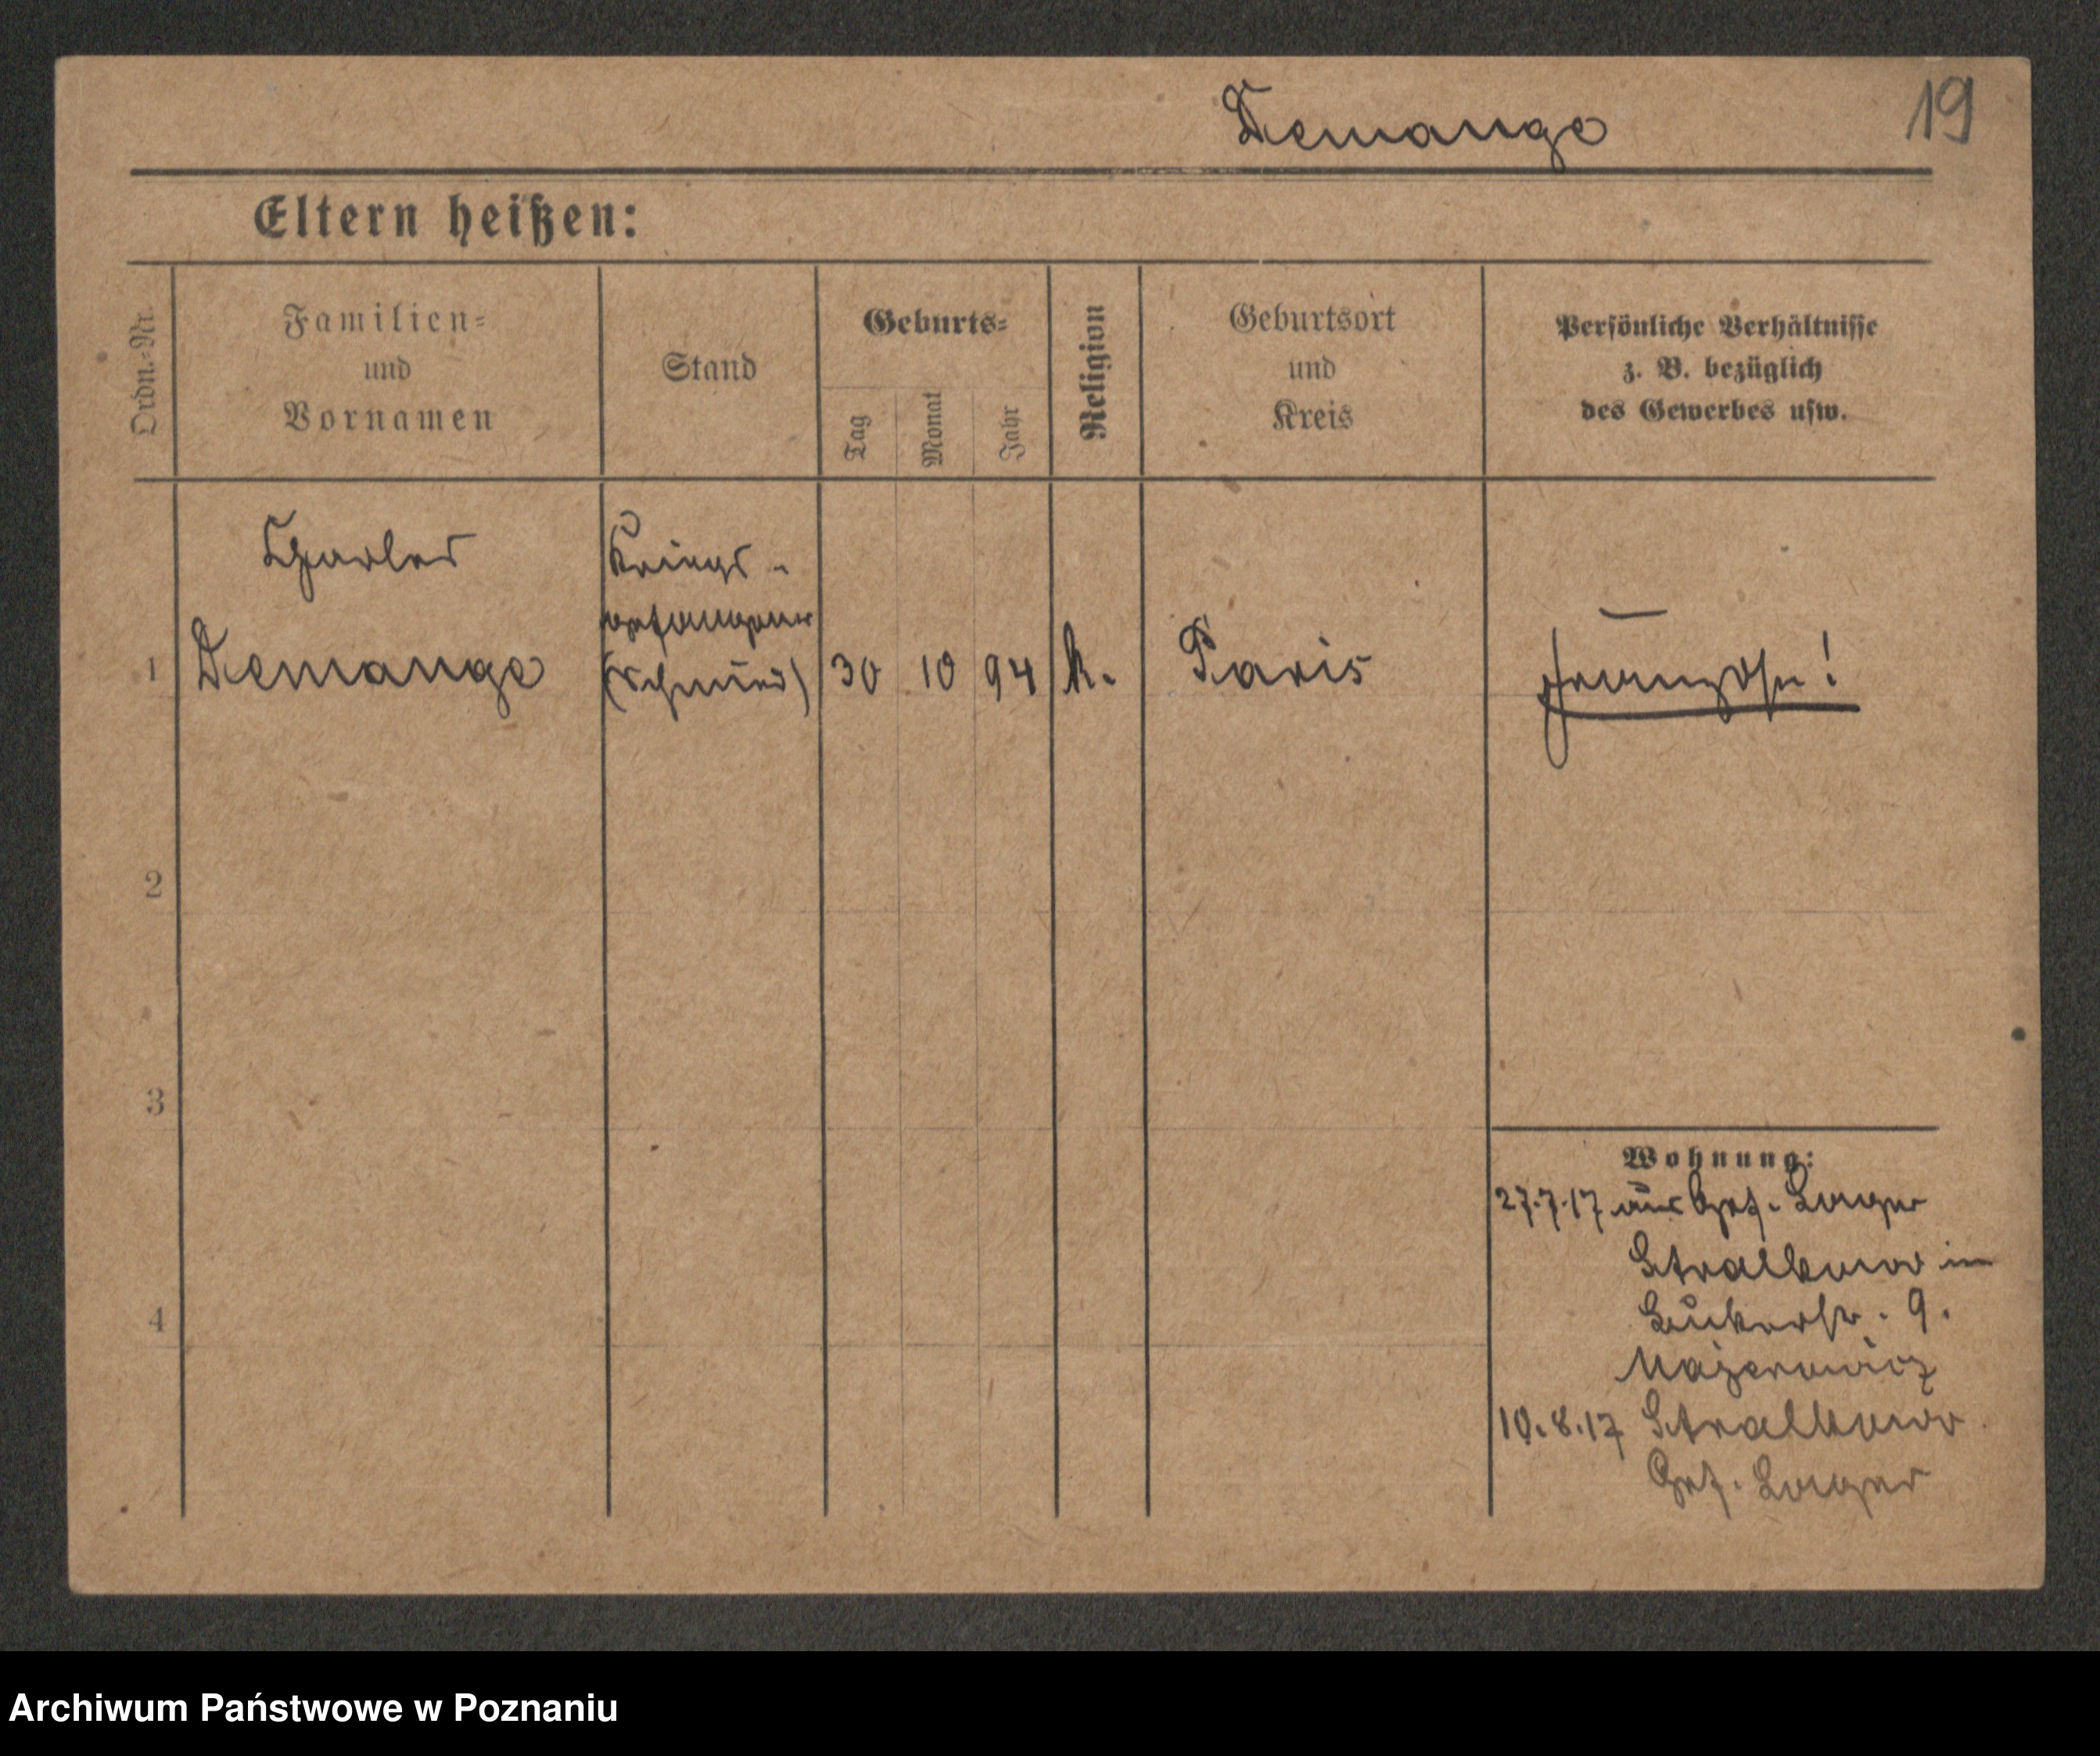 Demange
19
Eltern heißen:
Ordn.-Nr.
Familien-
und
Vornamen
Stand
Geburts-
Tag
Monat
Jahr
Religion
Geburtsort
und
Kreis
Persönliche Verhältnisse
z. B. bezüglich
des Gewerbes usw.
Charles
Kriegs-
gefangener
1 Demange (Schmied) 30 10 94 k. Paris Franzose!
2
3
4
Wohnung:
27.7.17 aus Gef. Lager
Stralkowo in
9.
10.8.17 Stralkowo
Gef. Lager
Archiwum Państwowe w Poznaniu